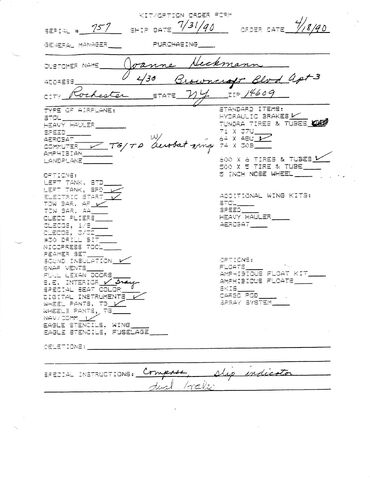 KIT/OPTION ORDER FORM
SERIAL # 757 SHIP DATE 7/31/90 ORDER DATE 4/18/90
GENERAL MANAGER PURCHASING
CUSTOMER NAME Joanne Heckmann
ADDRESS 430 Browncroft Blvd Apt 3
CITY Rochester STATE NY. ZIP 14609
TYPE OF AIRPLANE:
STOL
HEAVY HAULER
SPEED
AEROBAT
COMPUTER ✓ TG/TD w/ Aerobat wing
AMPHIBIAN
LANDPLANE
STANDARD ITEMS:
HYDRAULIC BRAKES ✓
TUNDRA TIRES & TUBES
71 X 37U
64 X 48U ✓
74 X 30B
600 X 6 TIRES & TUBES ✓
500 X 5 TIRE & TUBE
5 INCH NOSE WHEEL
OPTIONS:
LEFT TANK, STD
LEFT TANK, SPD ✓
ELECTRIC START ✓
TOW BAR, AF ✓
TOW BAR, AA
CLECO PLIERS
CLECOS, 1/8
CLECOS, 3/32
#30 DRILL BIT
NICOPRESS TOOL
REAMER SET
SOUND INSULATION ✓
SNAP VENTS
FULL LEXAN DOORS
S.E. INTERIOR ✓ Gray
SPECIAL SEAT COLOR
DIGITAL INSTRUMENTS ✓
WHEEL PANTS, TD ✓
WHEELS PANTS, TG
NAV/COMM ✓
EAGLE STENCILS, WING
EAGLE STENCILS, FUSELAGE
ADDITIONAL WING KITS:
STOL
SPEED
HEAVY HAULER
AEROBAT
OPTIONS:
FLOATS
AMPHIBIOUS FLOAT KIT
AMPHIBIOUS FLOATS
SKIS
CARGO POD
SPRAY SYSTEM
DELETIONS:
SPECIAL INSTRUCTIONS: Compass, slip indicator
dual brakes